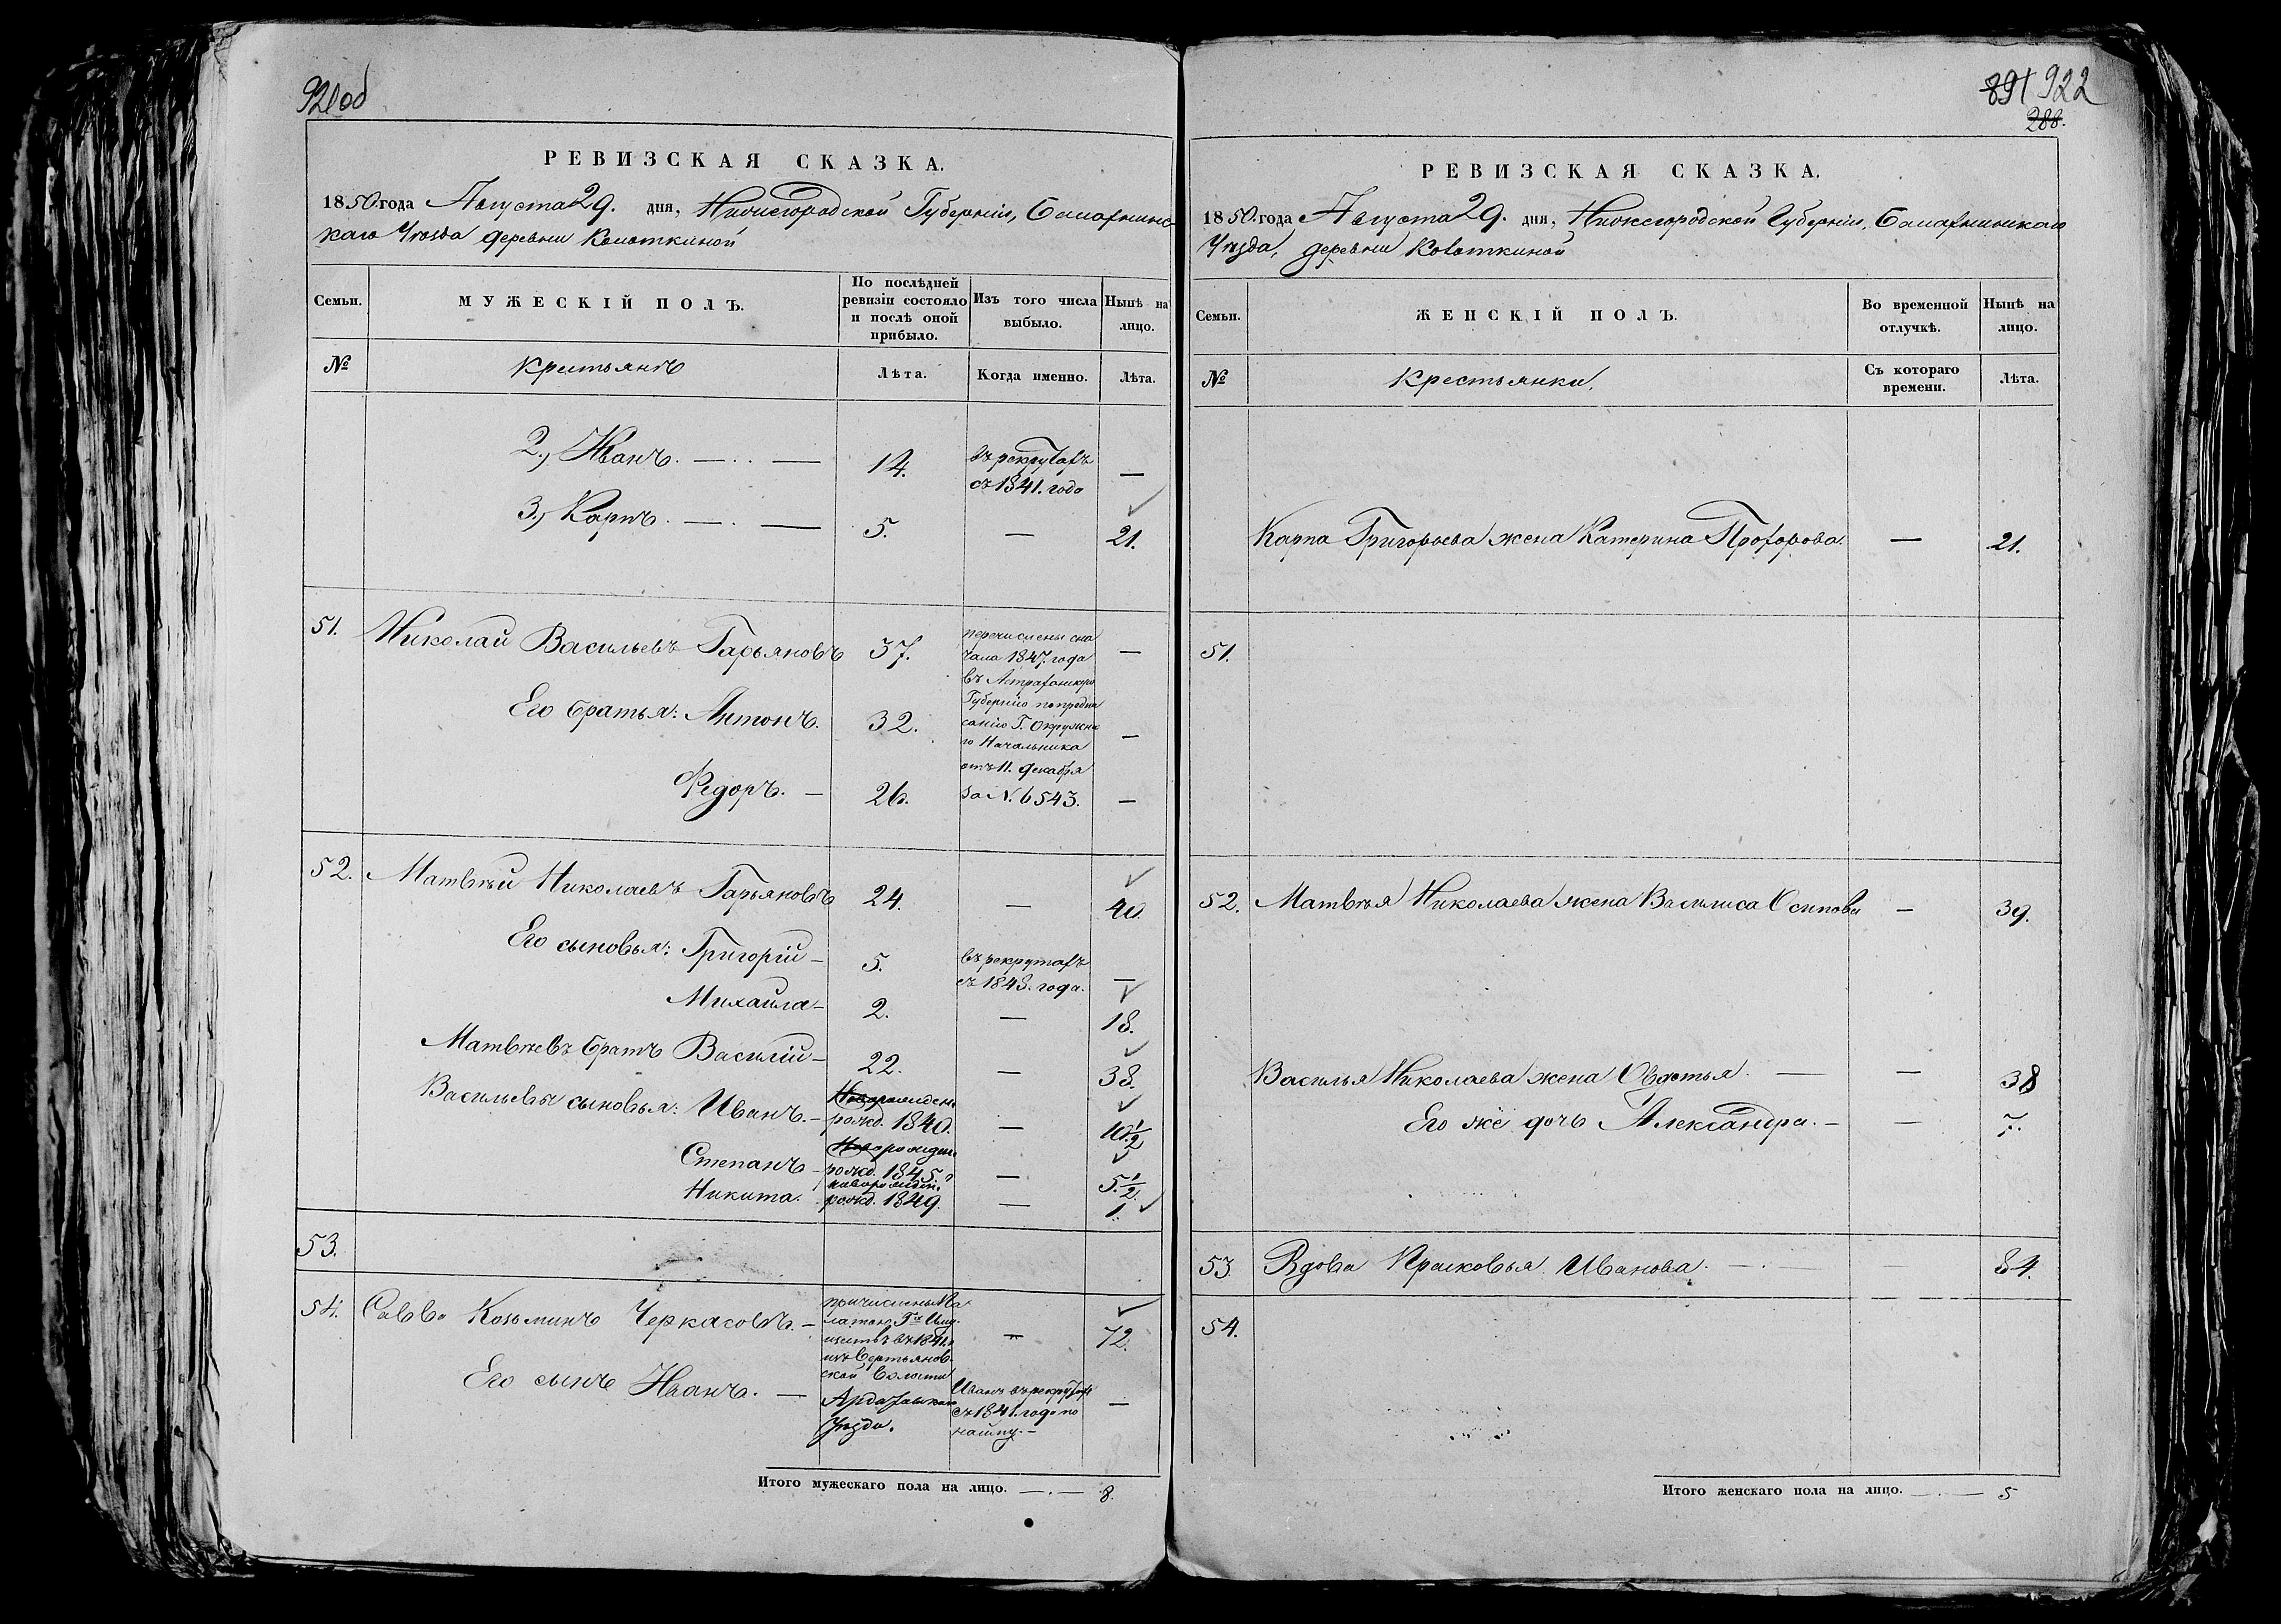 921об
РЕВИЗСКАЯ СКАЗКА.
1850 года Августа 29. дня, Нижегородской Губерніи, Балахнинс
каго Уѣзда деревни Колоткиной
Семьи.
МУЖЕСКІЙ ПОЛЪ.
По послѣдней
ревизіи состояло
и послѣ оной
прибыло.
Изъ того числа
выбыло.
Нынѣ на
лицо.
№
Крестьянъ
Лѣта.
Когда именно.
Лѣта.
2., Иванъ. — . . —
14.
въ рекрутахъ
съ 1841. года
—
3., Карпъ. — . —
5.
—
21.
51.
Николай Васильевъ Гарьяновъ
37.
перечислены сна
чала 1847. года
въ Астраханскую
Губернію по предпи
санію Г. Окружна
го Начальника
отъ 11. декабря
за №. 6543.
—
Его братья: Антонъ.
32.
—
Федоръ. —
26.
—
52.
Матвѣй Николаевъ Гарьяновъ
24.
—
40.
Его сыновья: Григорій —
5.
въ рекрутахъ
съ 1848. года.
—
Михайла —
2.
—
18.
Матвѣевъ братъ Василій —
22.
—
38.
Васильевы сыновья: Иванъ. —
Новорожден.
рожд. 1840.
—
10. 1/2
Степанъ —
Новорожден.
рожд. 1845.
—
5. 1/2
Никита.
новорожден.
рожд. 1849.
—
1.
53.
54.
Савва Козьминъ Черкасовъ. —
причислены
въ 1841.
изъ
ской Волости
Ардатовскаго
Уѣзда.
—
72.
Его сынъ Иванъ. —
Иванъ въ рекрутахъ
съ 1841. года по
найму. —
—
Итого мужескаго пола на лицо. — . — 8.
891 922
288.
РЕВИЗСКАЯ СКАЗКА.
1850 года Августа 29. дня, Нижегородской Губерніи, Балахнинскаго
Уѣзда, деревни Колоткиной
Семьи.
ЖЕНСКІЙ ПОЛЪ.
Во временной
отлучкѣ.
Нынѣ на
лицо.
№
Крестьянки.
Съ котораго
времени.
Лѣта.
Карпа Григорьева жена Катерина Прохорова.
—
21.
51.
52.
Матвѣя Николаева жена Василиса Осипова
—
39.
Василья Николаева жена Овдотья. —
—
38
Его же дочь Александра. —
—
7.
53.
Вдова Прасковья Иванова. — . —
84.
54.
Итого женскаго пола на лицо. — . — 5